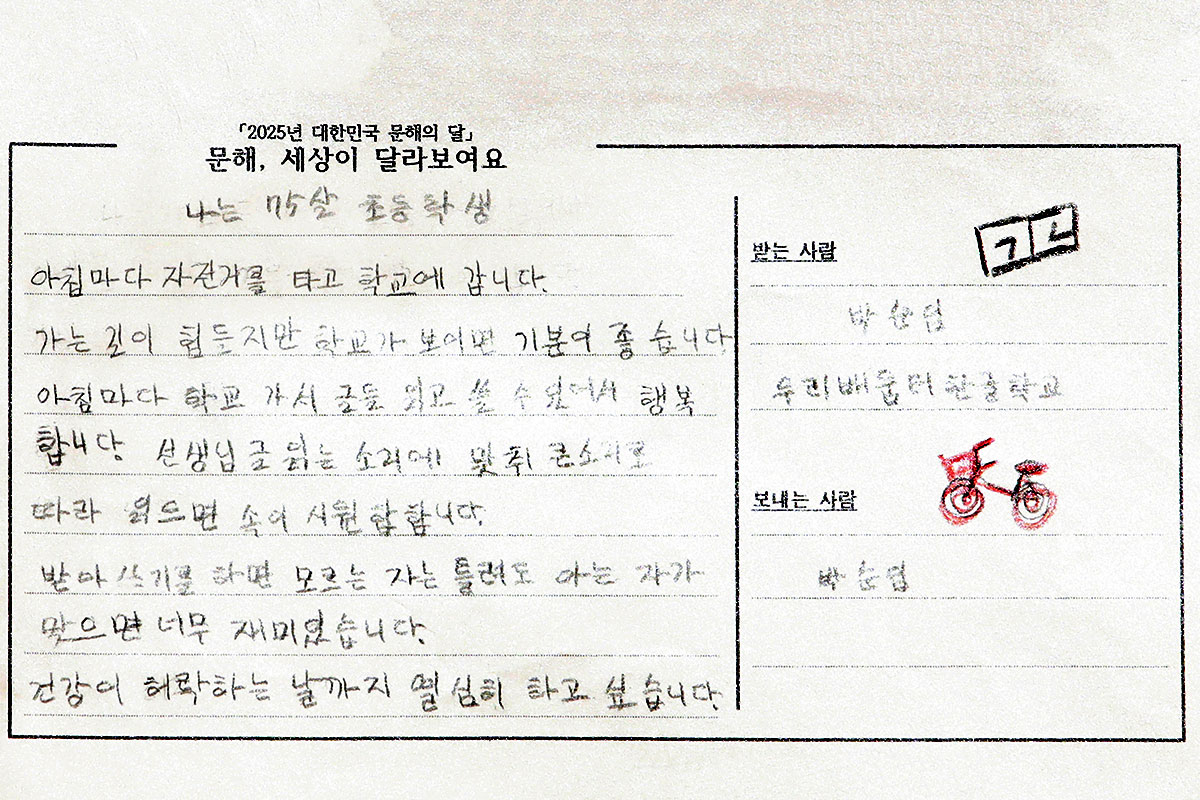 「2025년 대한민국 문해의 달」
문해, 세상이 달라보여요
나는 75살 초등학생
아침마다 자전거를 타고 학교에 갑니다.
가는 길이 힘든지만 학교가 보이면 기분이 좋습니다
아침마다 학교 가서 글들 읽고 쓸 수 있어서 행복
합니다. 선생님 글 읽는 소리에 맞춰 큰소리로
따라 읽으면 속이 시원합합니다.
받아 쓰기를 하면 모르는 자는 틀려도 아는 자가
맞으면 너무 재미있습니다.
건강이 허락하는 날까지 열심히 하고 싶습니다.
받는 사람
ㄱ ㄴ
박순덤
우리배움터한글학교
보내는 사람
박순덤